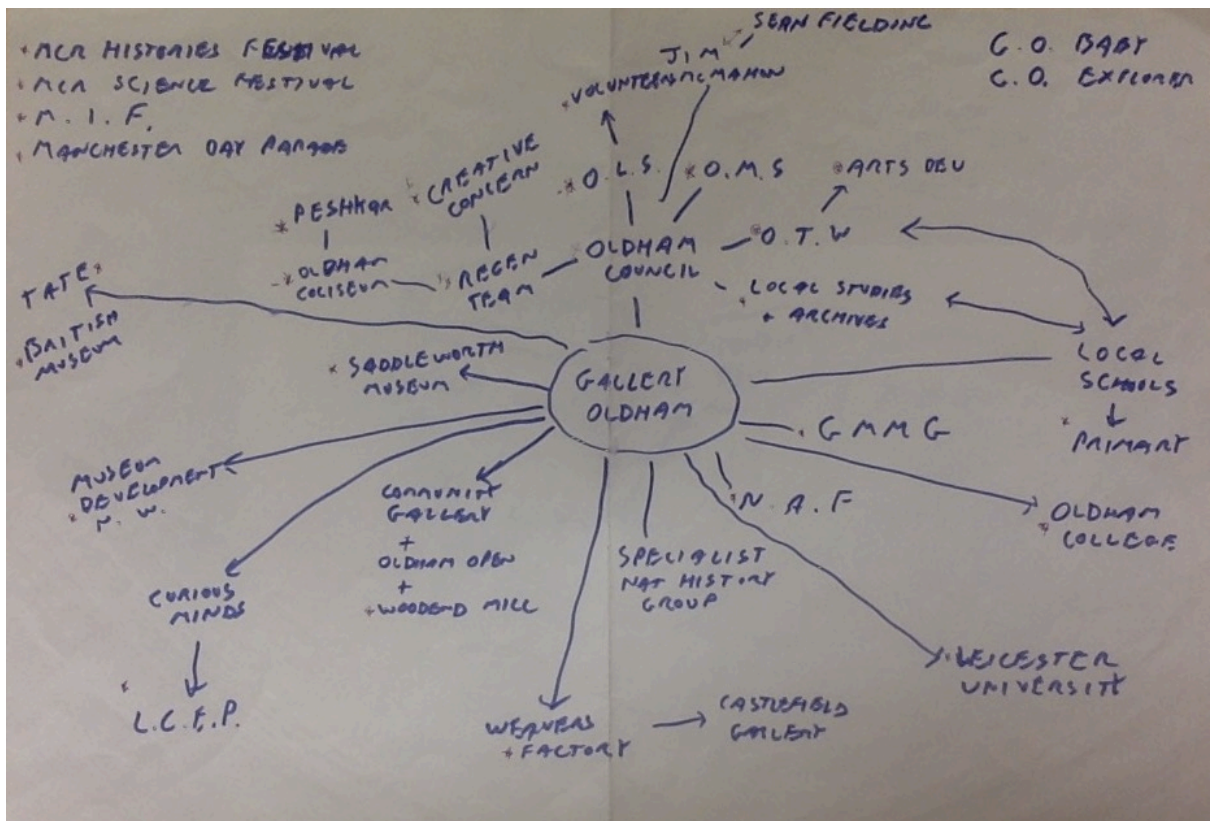 MCR HISTORIES FESTIVAL
MCR SCIENCE FESTIVAL
M. I. F.
MANCHESTER DAY PARADE
SEAN FIELDING
JIM
MCMAHON
VOLUNTEERS
G. O. BABY
G. O. EXPLORER
CREATIVE
CONCERN
* O. L. S.
* O. M. S
* ARTS DEV
* PESHKAR
* OLDHAM
COLISEUM
* REGEN
TEAM
OLDHAM
COUNCIL
* O. T. W
LOCAL STUDIES
+ ARCHIVES
TATE *
* BRITISH
MUSEUM
* SADDLEWORTH
MUSEUM
GALLERY
OLDHAM
LOCAL
SCHOOLS
* PRIMARY
* G M M G
MUSEUM
* DEVELOPMENT
N. W.
COMMUNITY
GALLERY
+
OLDHAM OPEN
+
* WOODEND MILL
* N. A. F
* OLDHAM
COLLEGE
SPECIALIST
NAT HISTORY
GROUP
CURIOUS
MINDS
*
L. C. E. P.
WEAVERS
* FACTORY
CASTLEFIELD
GALLERY
* LEICESTER
UNIVERSITY